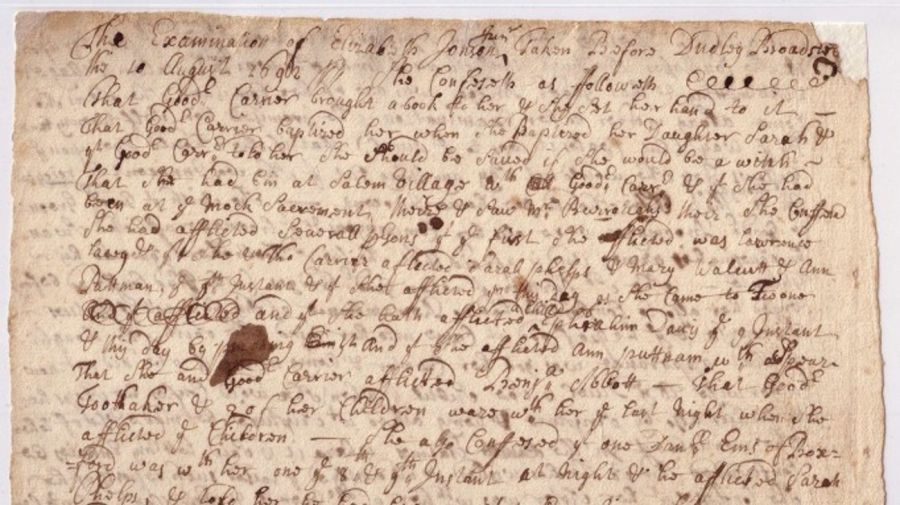 The Examination of Elizabeth Jonson Junr Taken Before Dudley Broadstre
the 10 August 1692 She Confeseth as followeth
that Goodᵉ Carrier brought a book to her & she set her hand to it —
that Goodᵉ Carrier baptized her when she Baptized her Daughter Sarah &
yt Goodᵉ Carrᵉ told her she should be saved if she would be a witch
that she had bin at Salem Village wth Goodᵉ Carrᵉ & yt she had
been at yᵉ Mock Sacrement theire & saw mr Burroughs theire She Confesd
She had afflicted Severall psons yt yᵉ first she afflicted was lawrence
& Carrier afflicted Sarah phelps & Mary Walcutt & Ann
Puttman yᵉ 9th Instant & yt she afflicted this day as she came to
afflicted and yt she hath afflicted a child of Ephraim Davis yᵉ 9 Instant
& this day by pinching and yt she afflicted Ann puttnam wth a Spear
That she and Goodᵉ Carrier afflicted Benjᵃ Abbott — That Goodᵉ
Toothaker & 2 of her Children ware wth her yᵉ last night when she
afflicted yᵉ Children — She also Confessed yt one Danˡˡ Eins of Box=
=ford was wth her one yᵉ 8th & 9th Instant at night & he afflicted Sarah
Phelps & told her he had